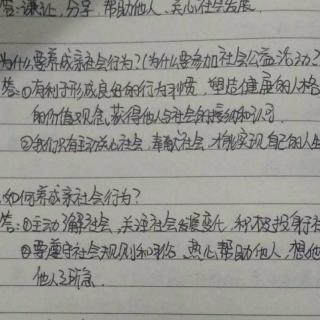 答:谦让,分享,帮助他人,关心社会发展.
为什么要养成亲社会行为?(为什么要参加社会公益活动?
答:①有利于形成良好的行为习惯,塑造健康的人格
的价值观念,获得他人与社会的接纳和认可.
②我们只有主动关心社会,奉献社会,才能实现自己的人生
如何养成亲社会行为?
答:①主动了解社会,关注社会发展变化,积极投身于社
②要遵守社会规则和习俗,热心帮助他人,想他
他人之所急.